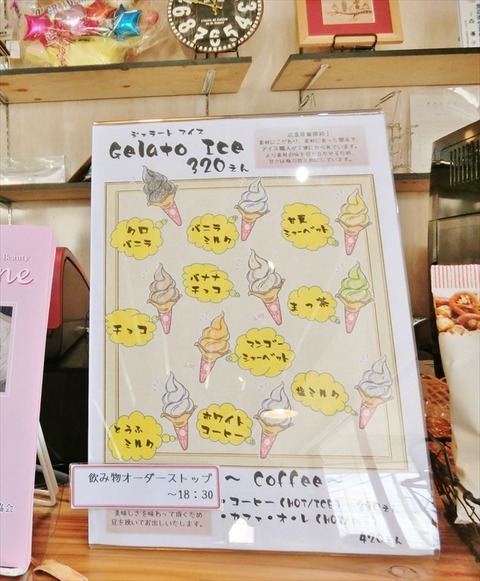 ジェラート アイス
Gelato Ice
320えん
クロ
バニラ
バニラ
ミルク
甘夏
シャーベット
チョコ
バナナ
チョコ
まっ茶
マンゴ
シャーベット
塩ミルク
とうふ
ミルク
ホワイト
コーヒー
飲み物オーダーストップ
～18：30
～ Coffee ～
・コーヒー(HOT/ICE)
・カフェ・オ・レ(HOT/
420えん
美味しさを味わって頂くため
豆を挽いてお出しいたします。
Beauty
ne
協会